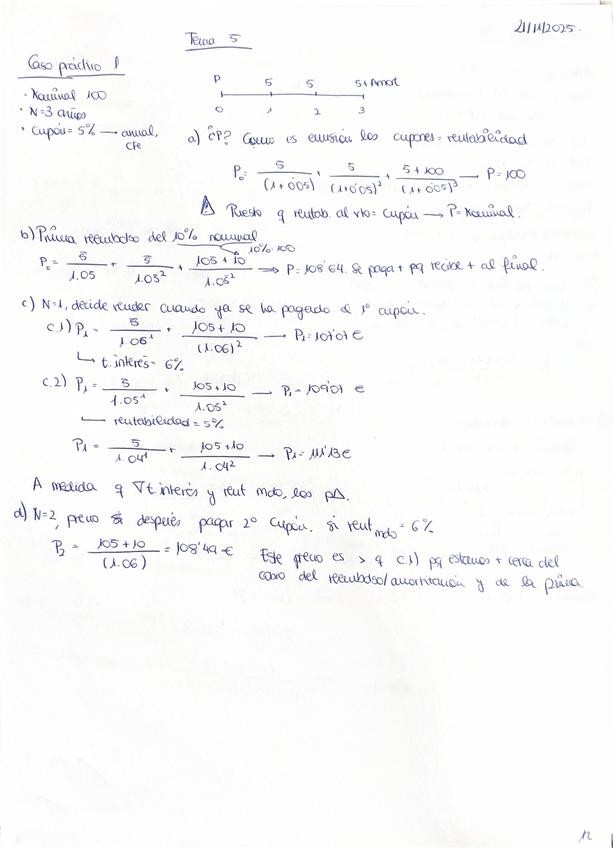 21/11/2025.
Tema 5
Caso práctico 1
P 5 5 5+Amort
0 1 2 3
· Nominal 100
· N=3 años
· Cupón= 5% → anual, cte
a) ¿P? Como es emisión los cupones = rentabilidad
P₀= 5/(1+0'05) + 5/(1+0'05)² + 5+100/(1+0'05)³ → P=100
⚠ Puesto q rentab. al vto = cupón → P=Nominal.
b) Prima reembolso del 10% nominal
10%·100
P₀= 5/1.05 + 5/1.05² + 105+10/1.05² ⇒ P=108'64. Se paga + pq recibe + al final.
c) N=1, decide vender cuando ya se ha pagado el 1º cupón.
c.1) P₁= 5/1.06¹ + 105+10/(1.06)² → P₁=107'07€
↳ t.interés= 6%
c.2) P₁= 5/1.05¹ + 105+10/1.05² → P₁=109'07 €
rentabilidad=5%
P₁= 5/1.04¹ + 105+10/1.04² → P₁=111'13€
A medida q ∇t.interés y rent mdo, los p∆.
d) N=2, precio después pagar 2º cupón, si rent mdo = 6%
P₂ = 105+10/(1.06) = 108'49 €
Este precio es > q c.1) pq estamos + cerca del
cobro del reembolso/amortización y de la prima.